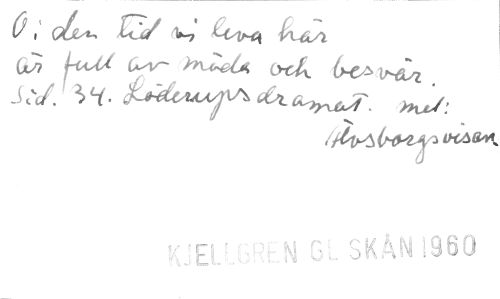 O, i den tid vi leva här
är full av möda och besvär.
Sid. 34. Löderupsdramat. mel:
Älvsborgsvisan
KJELLGREN GL SKÅN 1960